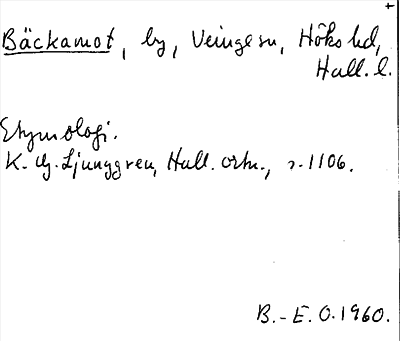 +
Bäckamot, by, Veinge sn, Höks hd,
Hall. l.
Etymologi.
K. G. Ljunggren, Hall. ortn., s. 1106.
B.-E. O. 1960.